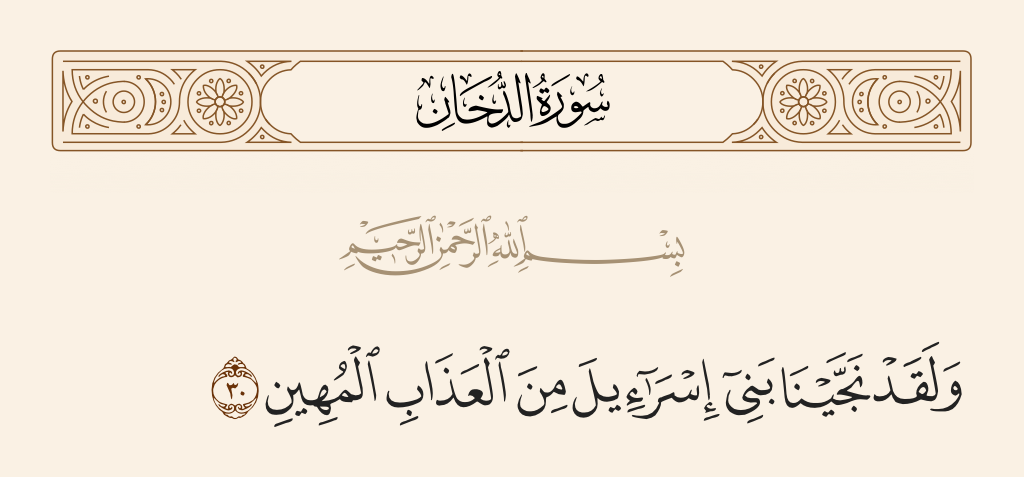 سُورَةُ الدُّخَانِ
بِسْمِ ٱللَّهِ ٱلرَّحْمَٰنِ ٱلرَّحِيمِ
وَلَقَدْ نَجَّيْنَا بَنِىٓ إِسْرَٰٓءِيلَ مِنَ ٱلْعَذَابِ ٱلْمُهِينِ ٣٠